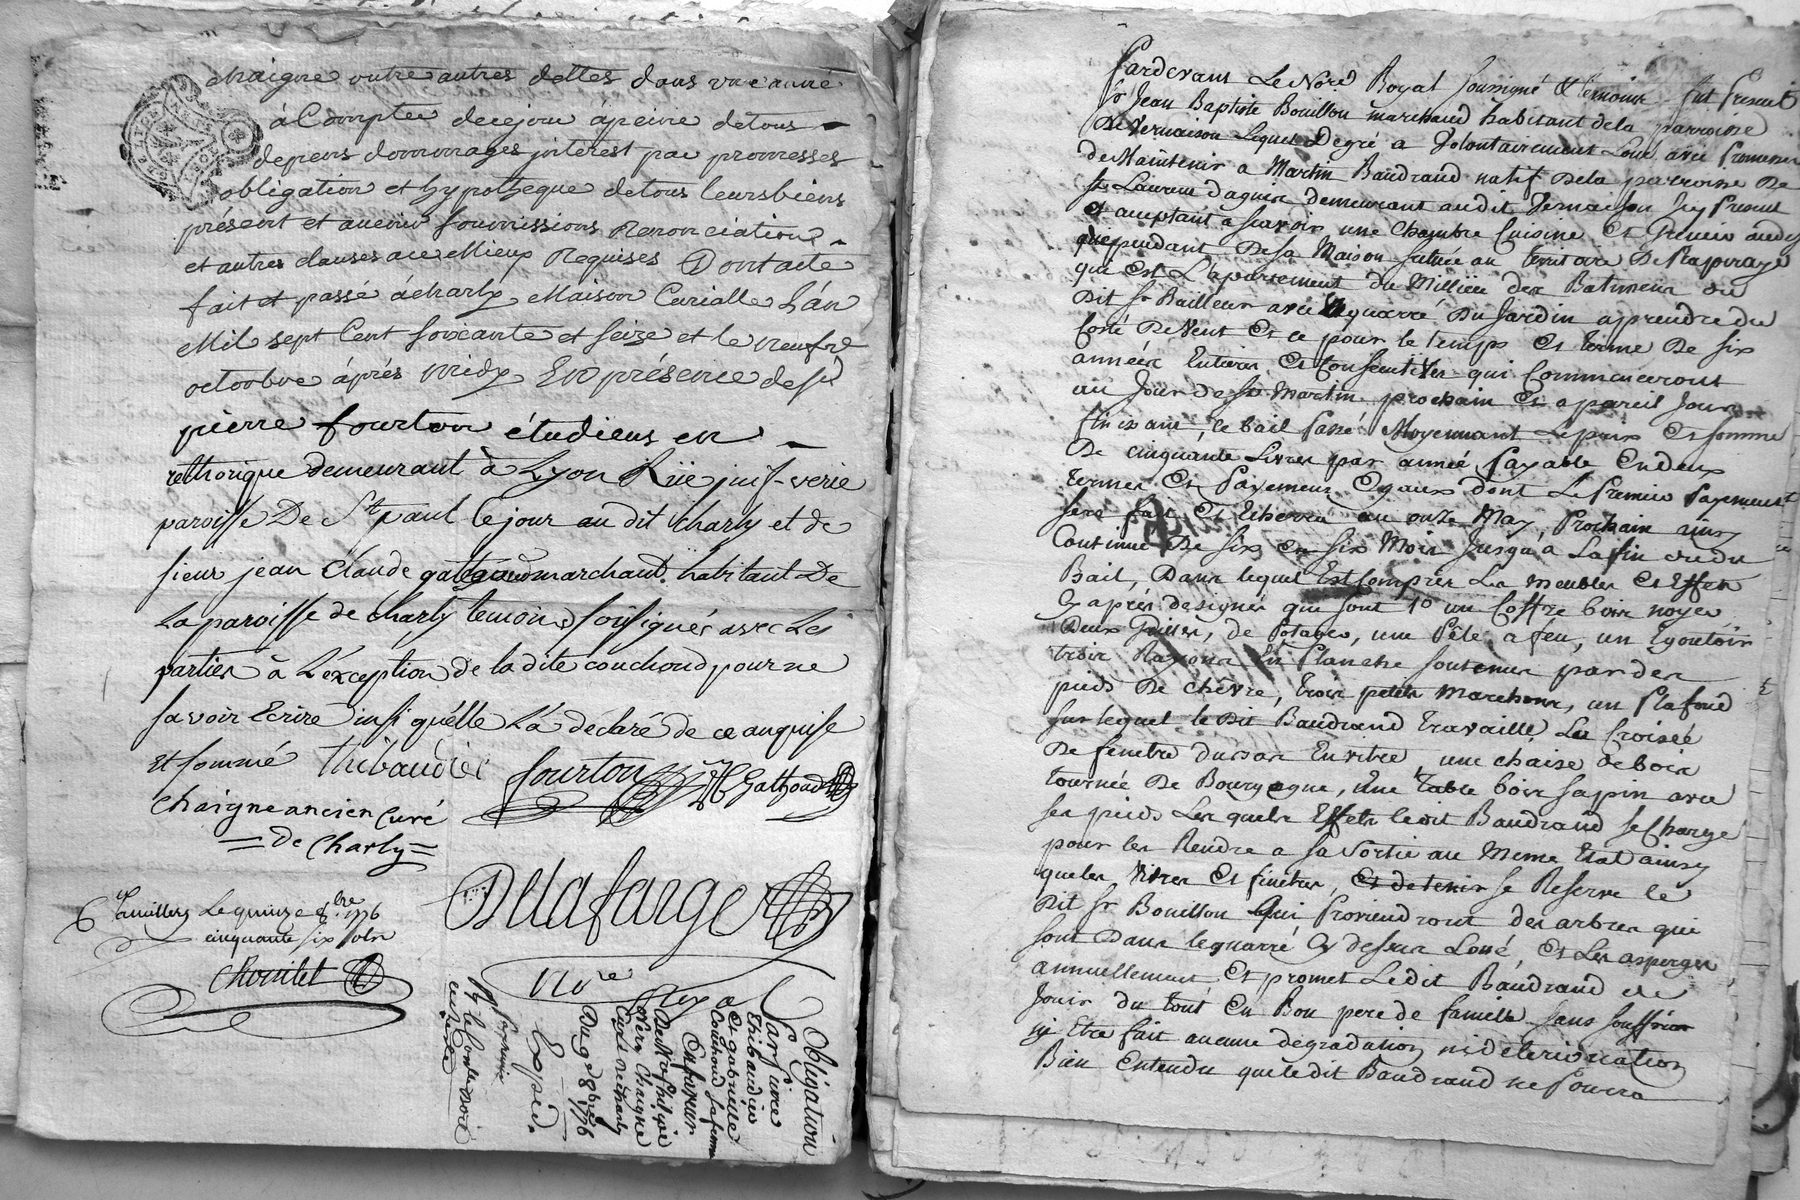 chaigne outre autres dettes dans une année
à Compter de ce jour à peine de tous
depens dommages interest par promesses
obligation et hypotheque de tous leurs biens
présent et avenir soumissions Renonciations
et autres clauses au Mieux Requises Dont acte
fait et passé à charly Maison Curialle L'an
Mil sept Cent soixante et seize et le neufe
octobre après midy En présence de sr
pierre fourton étudiens en
rethorique demeurant à Lyon Rüe juif-verie
paroisse De St paul le jour au dit charly et de
sieur jean Claude gathaud marchand habitant De
La paroisse de charly temoins soussignés avec Les
parties à L'exception de la dite couchoud pour ne
savoir Ecrire insi qu'elle L'a déclaré de ce anquise
Et sommé Thibaudier fourton JC Gathaud
Chaigne ancien Curé
= de Charly =
Delafarge
Nore Roy al
Cu Millery Le quinze 8bre 1776
cinquante six sols
Chourlet
Obligation
Par pierre
thibaudier
Et gabrielle
Couchoud sa femme
En faveur
De Mre philipe
pierre Chaigne
Curé de Charly
Du 9e 8bre 1776
Expéd.
Pardevant Le Nore Royal soussigné & temoins fut present
sr Jean Baptiste Bouillon marchand habitant de la parroisse
De Vernaison Lequel Degré a Volontairement Loué avec Promesse
de Maintenir a Martin Baudrand natif De la parroisse De
St Laurent d'agnin demeurant audit Vernaison Icy Present
et acceptant à scavoir une Chambre Cuisine Et Grenier au dessus
dependant De sa Maison située au territoire De
qui est L'apartement du Millieu des Batimens du
Dit sr Bailleur avec un quarré Du Jardin a prendre du
Costé De Vent Et ce pour le temps Et terme De six
années Entieres Et Consecutives qui Commenceront
au Jour de St Martin prochain Et a pareil Jour
finissant, le bail Passé Moyennant Le prix Et somme
De cinquante Livres par année payable En deux
termes Et Payemens Egaux dont Le Premier Payement
sera fait Et Echerra au onze May Prochain ainsy
Continué De six En six Mois Jusqu'a La fin dudu
Bail, Dans lequel Est Compris Les meubles Et Effets
Cy après designés qui sont 1o un Coffre bois noyer
Deux Grilles, de Potager, une Pêle a feu, un Egoutoir
trois Rayons En Planche soutenus par des
pieds De chêvre, trois petits marchons, un Plafond
sur lequel le Dit Baudrand travaille, La Croisée
De fenetre En vitre, une chaise de bois
tournée De Bourgogne, Une table bois sapin avec
ses pieds Lesquels Effets ledit Baudrand se Charge
pour les Rendre a sa sortie au Meme Etat ainsy
que les Vitres Et finêtres, se Reserve le
Dit sr Bouillon Qui Proviendront des arbres qui
sont Dans le quarré Cy dessus Loué, Et Les asperges
annuellement Et promet Ledit Baudrand de
Jouir du tout En Bon pere de famille sans souffrir
ny Etre fait aucune degradation ni déterioration
Bien Entendu que le dit Baudrand ne Pourra